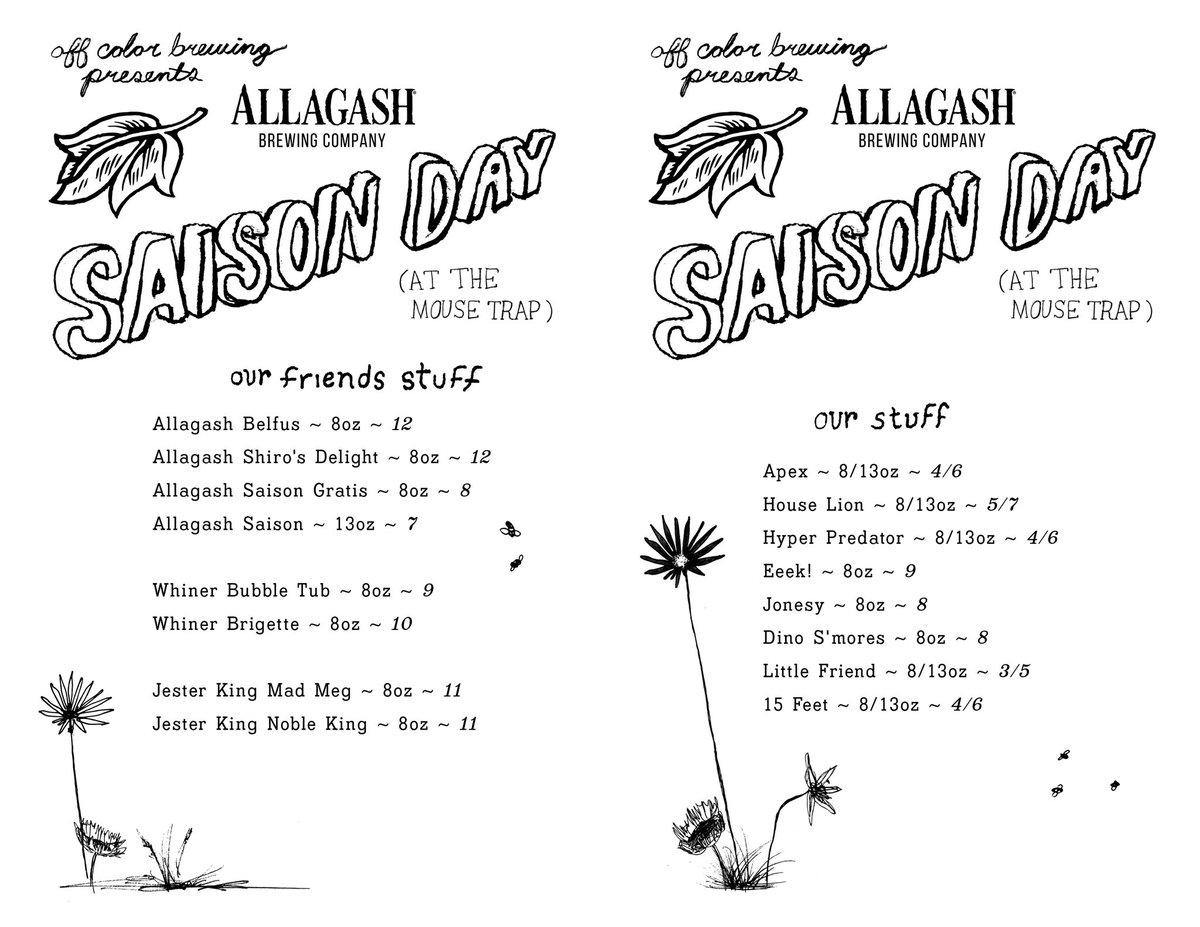 off color brewing
presents
ALLAGASH
BREWING COMPANY
SAISON DAY
(AT THE
MOUSE TRAP)
our friends stuff
Allagash Belfus ~ 8oz ~ 12
Allagash Shiro's Delight ~ 8oz ~ 12
Allagash Saison Gratis ~ 8oz ~ 8
Allagash Saison ~ 13oz ~ 7
Whiner Bubble Tub ~ 8oz ~ 9
Whiner Brigette ~ 8oz ~ 10
Jester King Mad Meg ~ 8oz ~ 11
Jester King Noble King ~ 8oz ~ 11
off color brewing
presents
ALLAGASH
BREWING COMPANY
SAISON DAY
(AT THE
MOUSE TRAP)
our stuff
Apex ~ 8/13oz ~ 4/6
House Lion ~ 8/13oz ~ 5/7
Hyper Predator ~ 8/13oz ~ 4/6
Eeek! ~ 8oz ~ 9
Jonesy ~ 8oz ~ 8
Dino S'mores ~ 8oz ~ 8
Little Friend ~ 8/13oz ~ 3/5
15 Feet ~ 8/13oz ~ 4/6